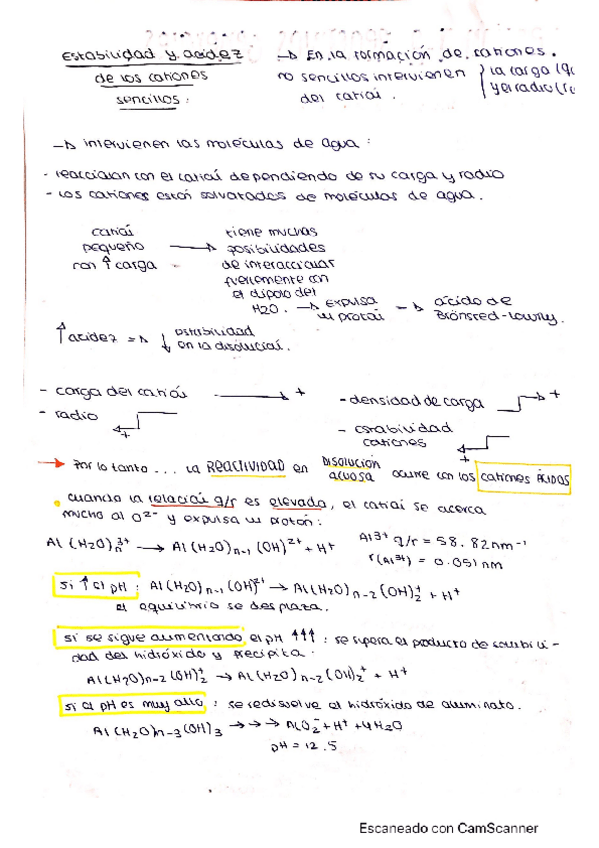 Estabilidad y acidez
de los cationes
sencillos:
→ En la formación de cationes
no sencillos intervienen { la carga (q
del catión. y el radio (r
→ intervienen las moléculas de agua:
- reaccionan con el catión dependiendo de su carga y radio
- los cationes están solvatados de moléculas de agua.
catión
pequeño
con ↑ carga
→ tiene muchas
posibilidades
de interaccionar
fuertemente con
el dipolo del
H2O. → expulsa
un protón → ácido de
Brönsted-Lowry.
↑ acidez => ↓ estabilidad
en la disolución.
- carga del catión → +
- radio +
- densidad de carga +
- estabilidad
cationes +
→ Por lo tanto... la REACTIVIDAD en DISOLUCIÓN
ACUOSA ocurre con los cationes ÁCIDOS
cuando la relación q/r es elevada, el catión se acerca
mucho al O2- y expulsa un protón:
Al(H2O)n3+ → Al(H2O)n-1(OH)2+ + H+
Al3+ q/r = 58.82nm-1
r(Al3+) = 0.051nm
si ↑ el pH: Al(H2O)n-1(OH)2+ → Al(H2O)n-2(OH)2+ + H+
el equilibrio se desplaza.
si se sigue aumentando el pH ↑↑↑: se supera el producto de solubili-
dad del hidróxido y precipita.
Al(H2O)n-2(OH)2+ → Al(H2O)n-2(OH)2+ + H+
si el pH es muy alto: se redisuelve el hidróxido de aluminato.
Al(H2O)n-3(OH)3 →→→ AlO2- + H+ + 4H2O
pH = 12.5
Escaneado con CamScanner